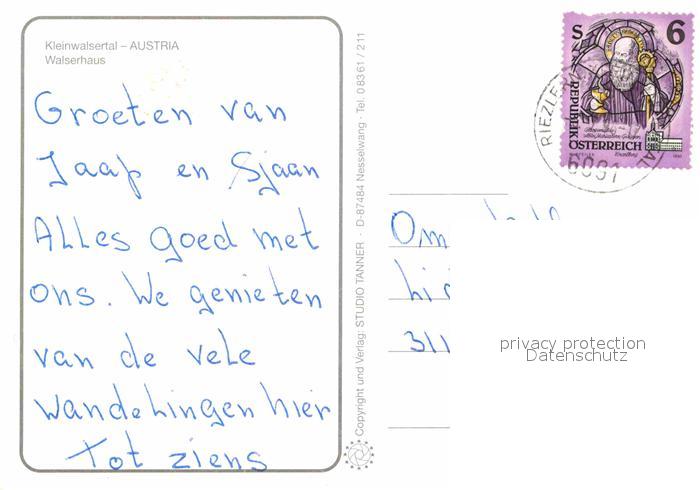 Kleinwalsertal – AUSTRIA
Walserhaus
Groeten van
Jaap en Sjaan
Alles goed met
ons. We genieten
van de vele
wandelingen hier
Tot ziens
Copyright und Verlag: STUDIO TANNER · D-87484 Nesselwang · Tel. 0 83 61 / 2 11
S 6
REPUBLIK
ÖSTERREICH
RIEZLE
Om
hi
311
privacy protection
Datenschutz